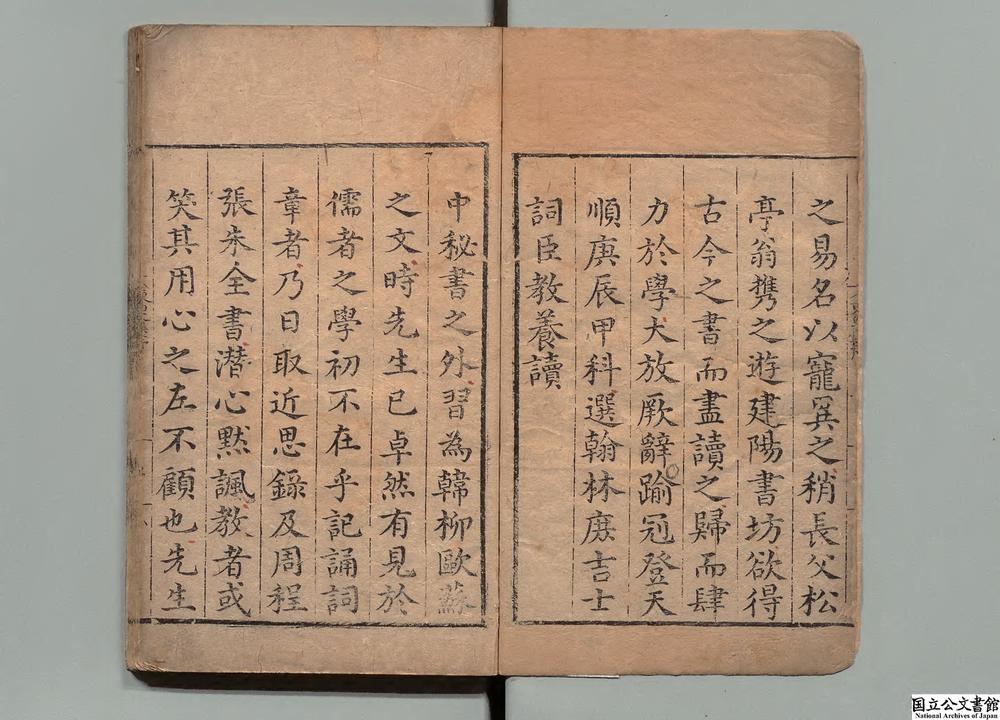 之易名以寵異之稍長父松
亭翁攜之遊建陽書坊欲得
古今之書而盡讀之歸而肆
力於學大放厥辭踰冠登天
順庚辰甲科選翰林庶吉士
詞臣教養讀
中秘書之外習為韓柳歐蘇
之文時先生已卓然有見於
儒者之學初不在乎記誦詞
章者乃日取近思錄及周程
張朱全書潛心黙諷教者或
笑其用心之左不顧也先生
国立公文書館
National Archives of Japan